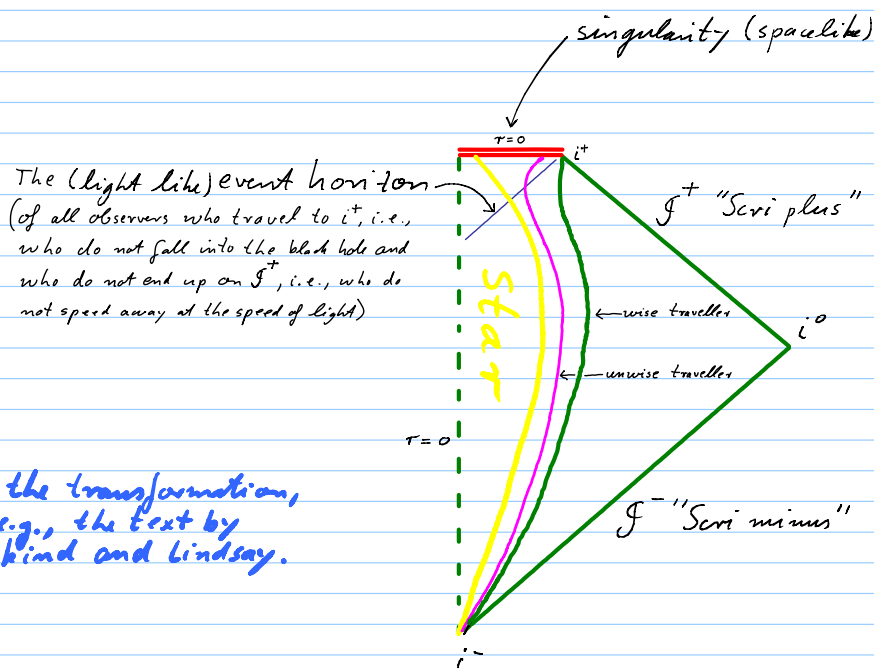 singularity (spacelike)
r=0
i⁺
The (light like) event horizon
(of all observers who travel to i⁺, i.e.,
who do not fall into the black hole and
who do not end up on 𝓘⁺, i.e., who do
not speed away at the speed of light)
𝓘⁺ "Scri plus"
Star
wise traveller
i⁰
unwise traveller
r=0
the transformation,
e.g., the text by
kind and Lindsay.
𝓘⁻ "Scri minus"
i⁻